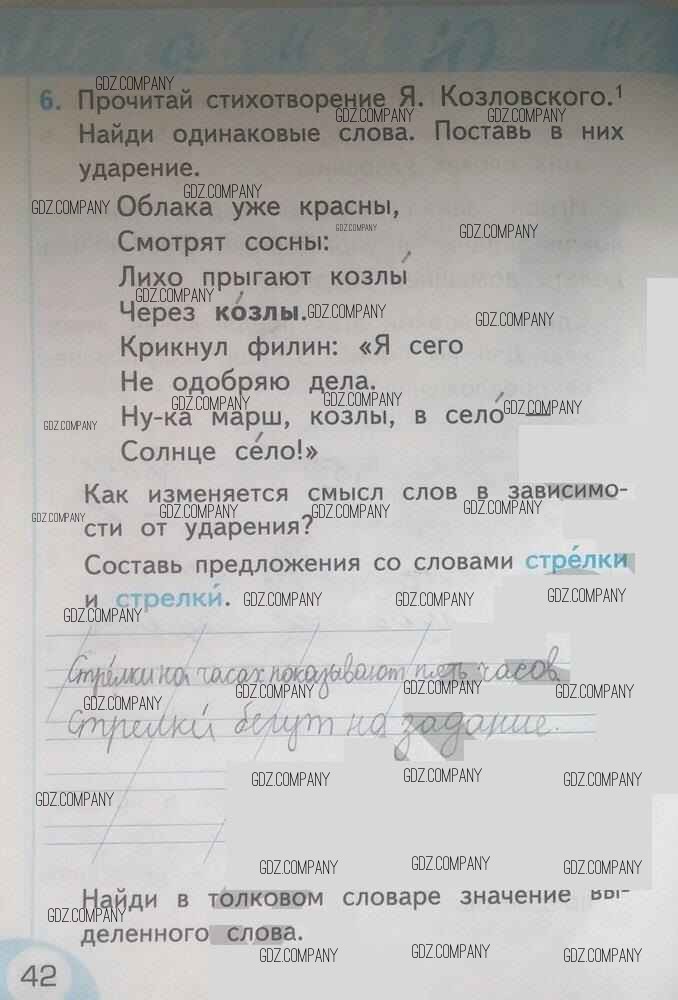 6. Прочитай стихотворение Я. Козловского.¹
Найди одинаковые слова. Поставь в них
ударение.
Облака уже красны,
Смотрят сосны:
Лихо прыгают козлы́
Через ко́злы.
Крикнул филин: «Я сего
Не одобряю дела.
Ну-ка марш, козлы, в село́ —
Солнце се́ло!»
Как изменяется смысл слов в зависимо-
сти от ударения?
Составь предложения со словами стре́лки
и стрелки́.
Стре́лки на часах показывают пять часов.
Стрелки́ бегут на задание.
Найди в толковом словаре значение вы-
деленного слова.
42
GDZ.COMPANY